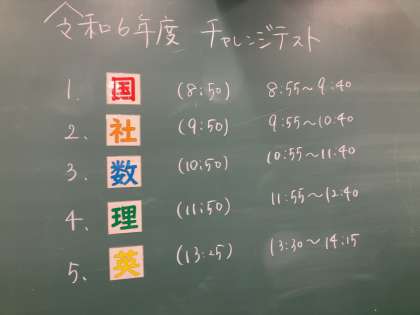 令和6年度 チャレンジテスト
1. 国 (8:50) 8:55～9:40
2. 社 (9:50) 9:55～10:40
3. 数 (10:50) 10:55～11:40
4. 理 (11:50) 11:55～12:40
5. 英 (13:25) 13:30～14:15